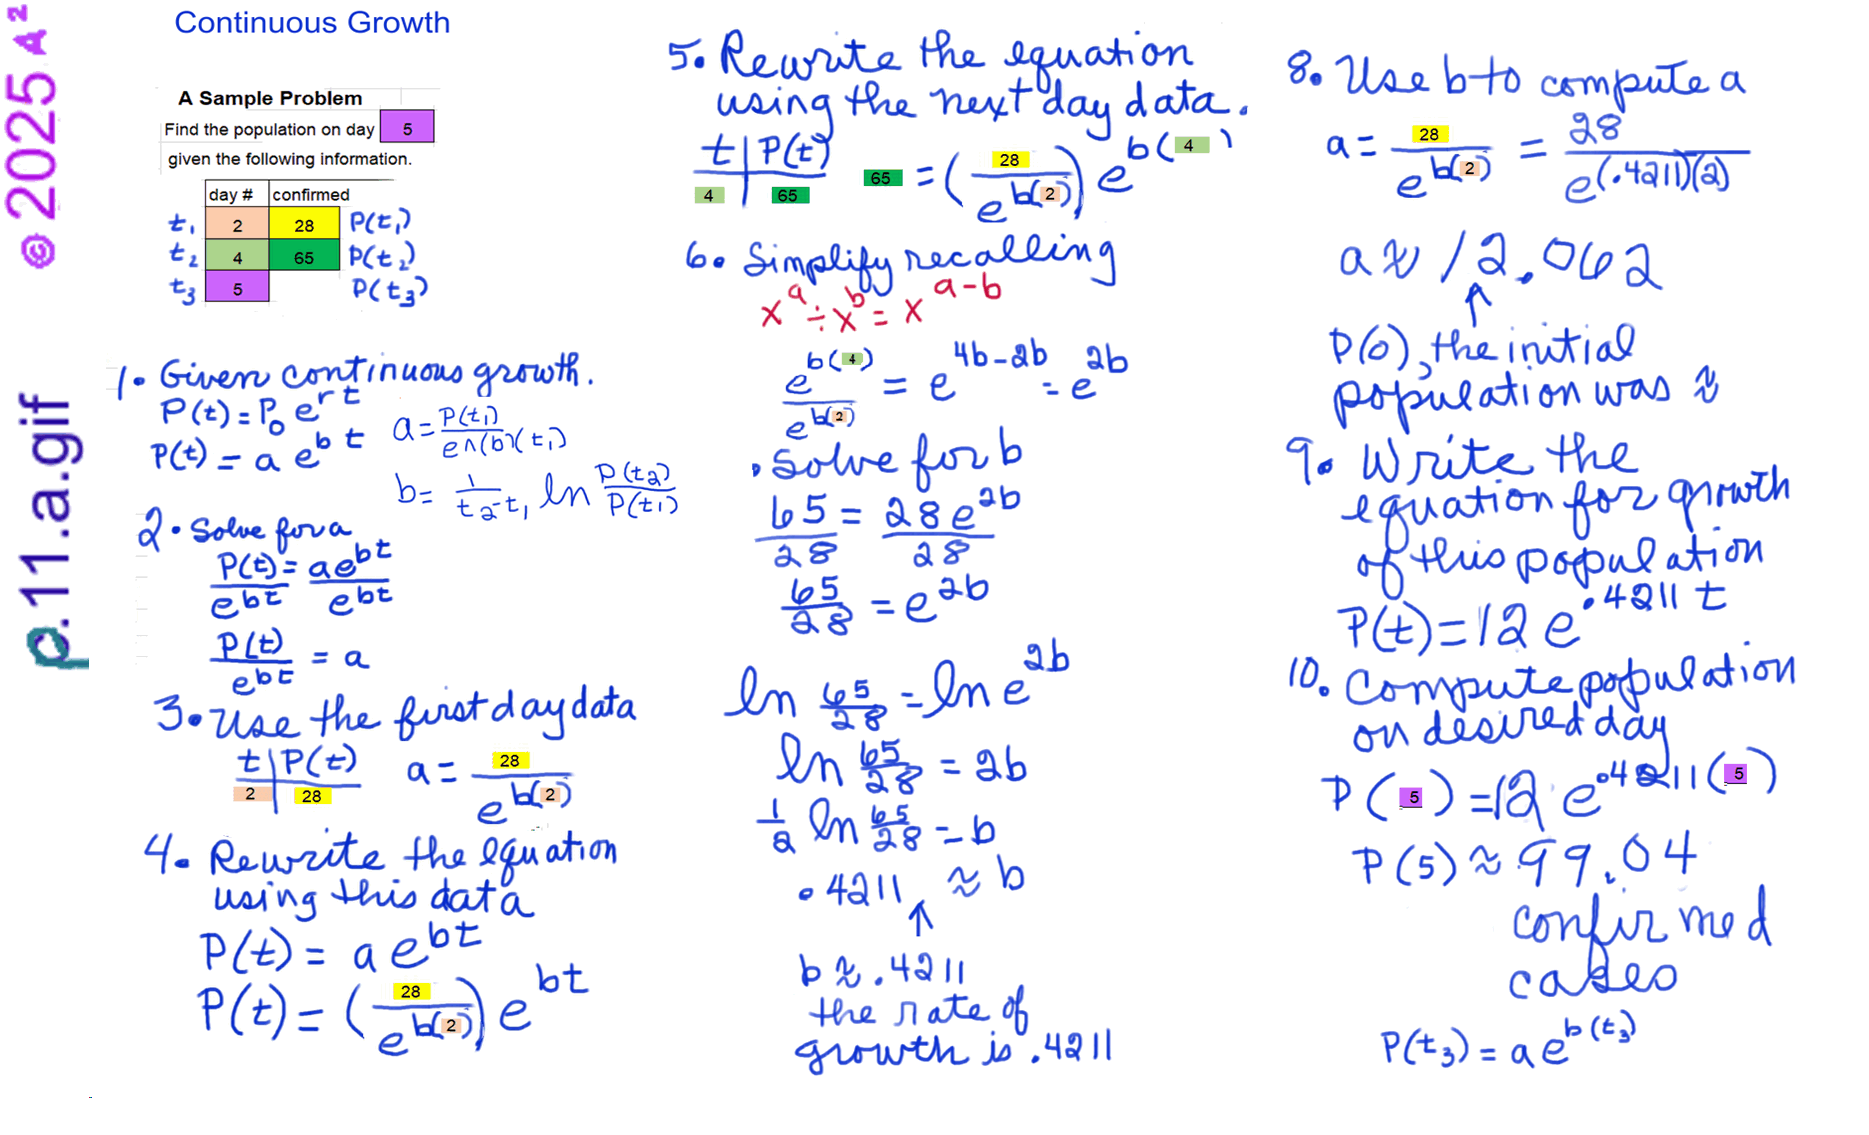 © 2025 A²
p.11.a.gif
Continuous Growth
A Sample Problem
Find the population on day 5
given the following information.
day # confirmed
t₁ 2 28 P(t₁)
t₂ 4 65 P(t₂)
t₃ 5 P(t₃)
1. Given continuous growth.
P(t) = P₀ e^rt
P(t) = a e^bt
a = P(t₁) / e^(b)(t₁)
b = 1/(t₂-t₁) ln P(t₂)/P(t₁)
2. Solve for a
P(t)/e^bt = ae^bt/e^bt
P(t)/e^bt = a
3. Use the first day data
t | P(t)
2 | 28
a = 28/e^b(2)
4. Rewrite the equation
using this data
P(t) = a e^bt
P(t) = (28/e^b(2)) e^bt
5. Rewrite the equation
using the next day data.
t | P(t)
4 | 65
65 = (28/e^b(2)) e^b(4)
6. Simplify recalling
x^a ÷ x^b = x^a-b
e^b(4)/e^b(2) = e^4b-2b = e^2b
. Solve for b
65/28 = 28e^2b/28
65/28 = e^2b
ln 65/28 = ln e^2b
ln 65/28 = 2b
1/2 ln 65/28 = b
.4211 ≈ b
↑
b ≈ .4211
the rate of
growth is .4211
8. Use b to compute a
a = 28/e^b(2) = 28/e^(.4211)(2)
a ≈ 12.062
↑
P(0), the initial
population was ≈
9. Write the
equation for growth
of this population
P(t) = 12 e^.4211 t
10. Compute population
on desired day
P(5) = 12 e^.4211(5)
P(5) ≈ 99.04
confirmed
cases
P(t₃) = a e^b(t₃)